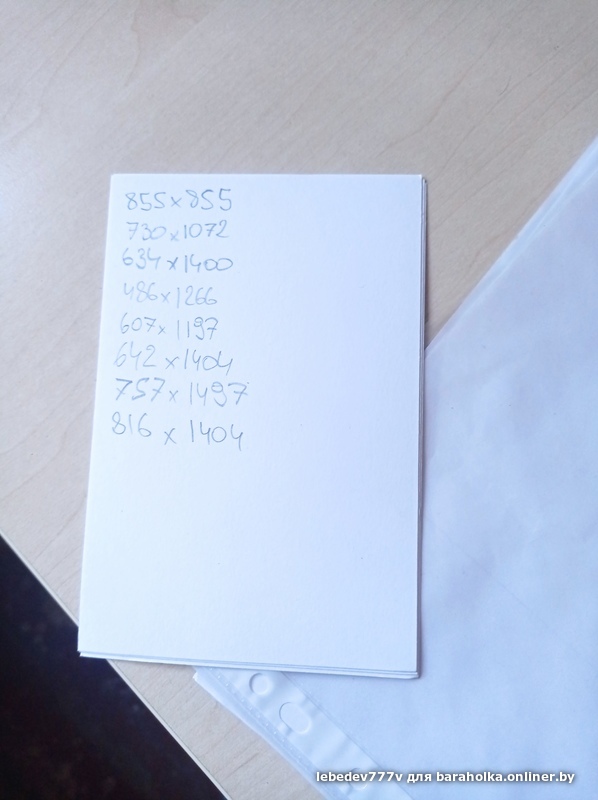 855x855
730x1072
634x1400
486x1266
607x1197
642x1404
757x1497
816x1404
lebedev777v для baraholka.onliner.by